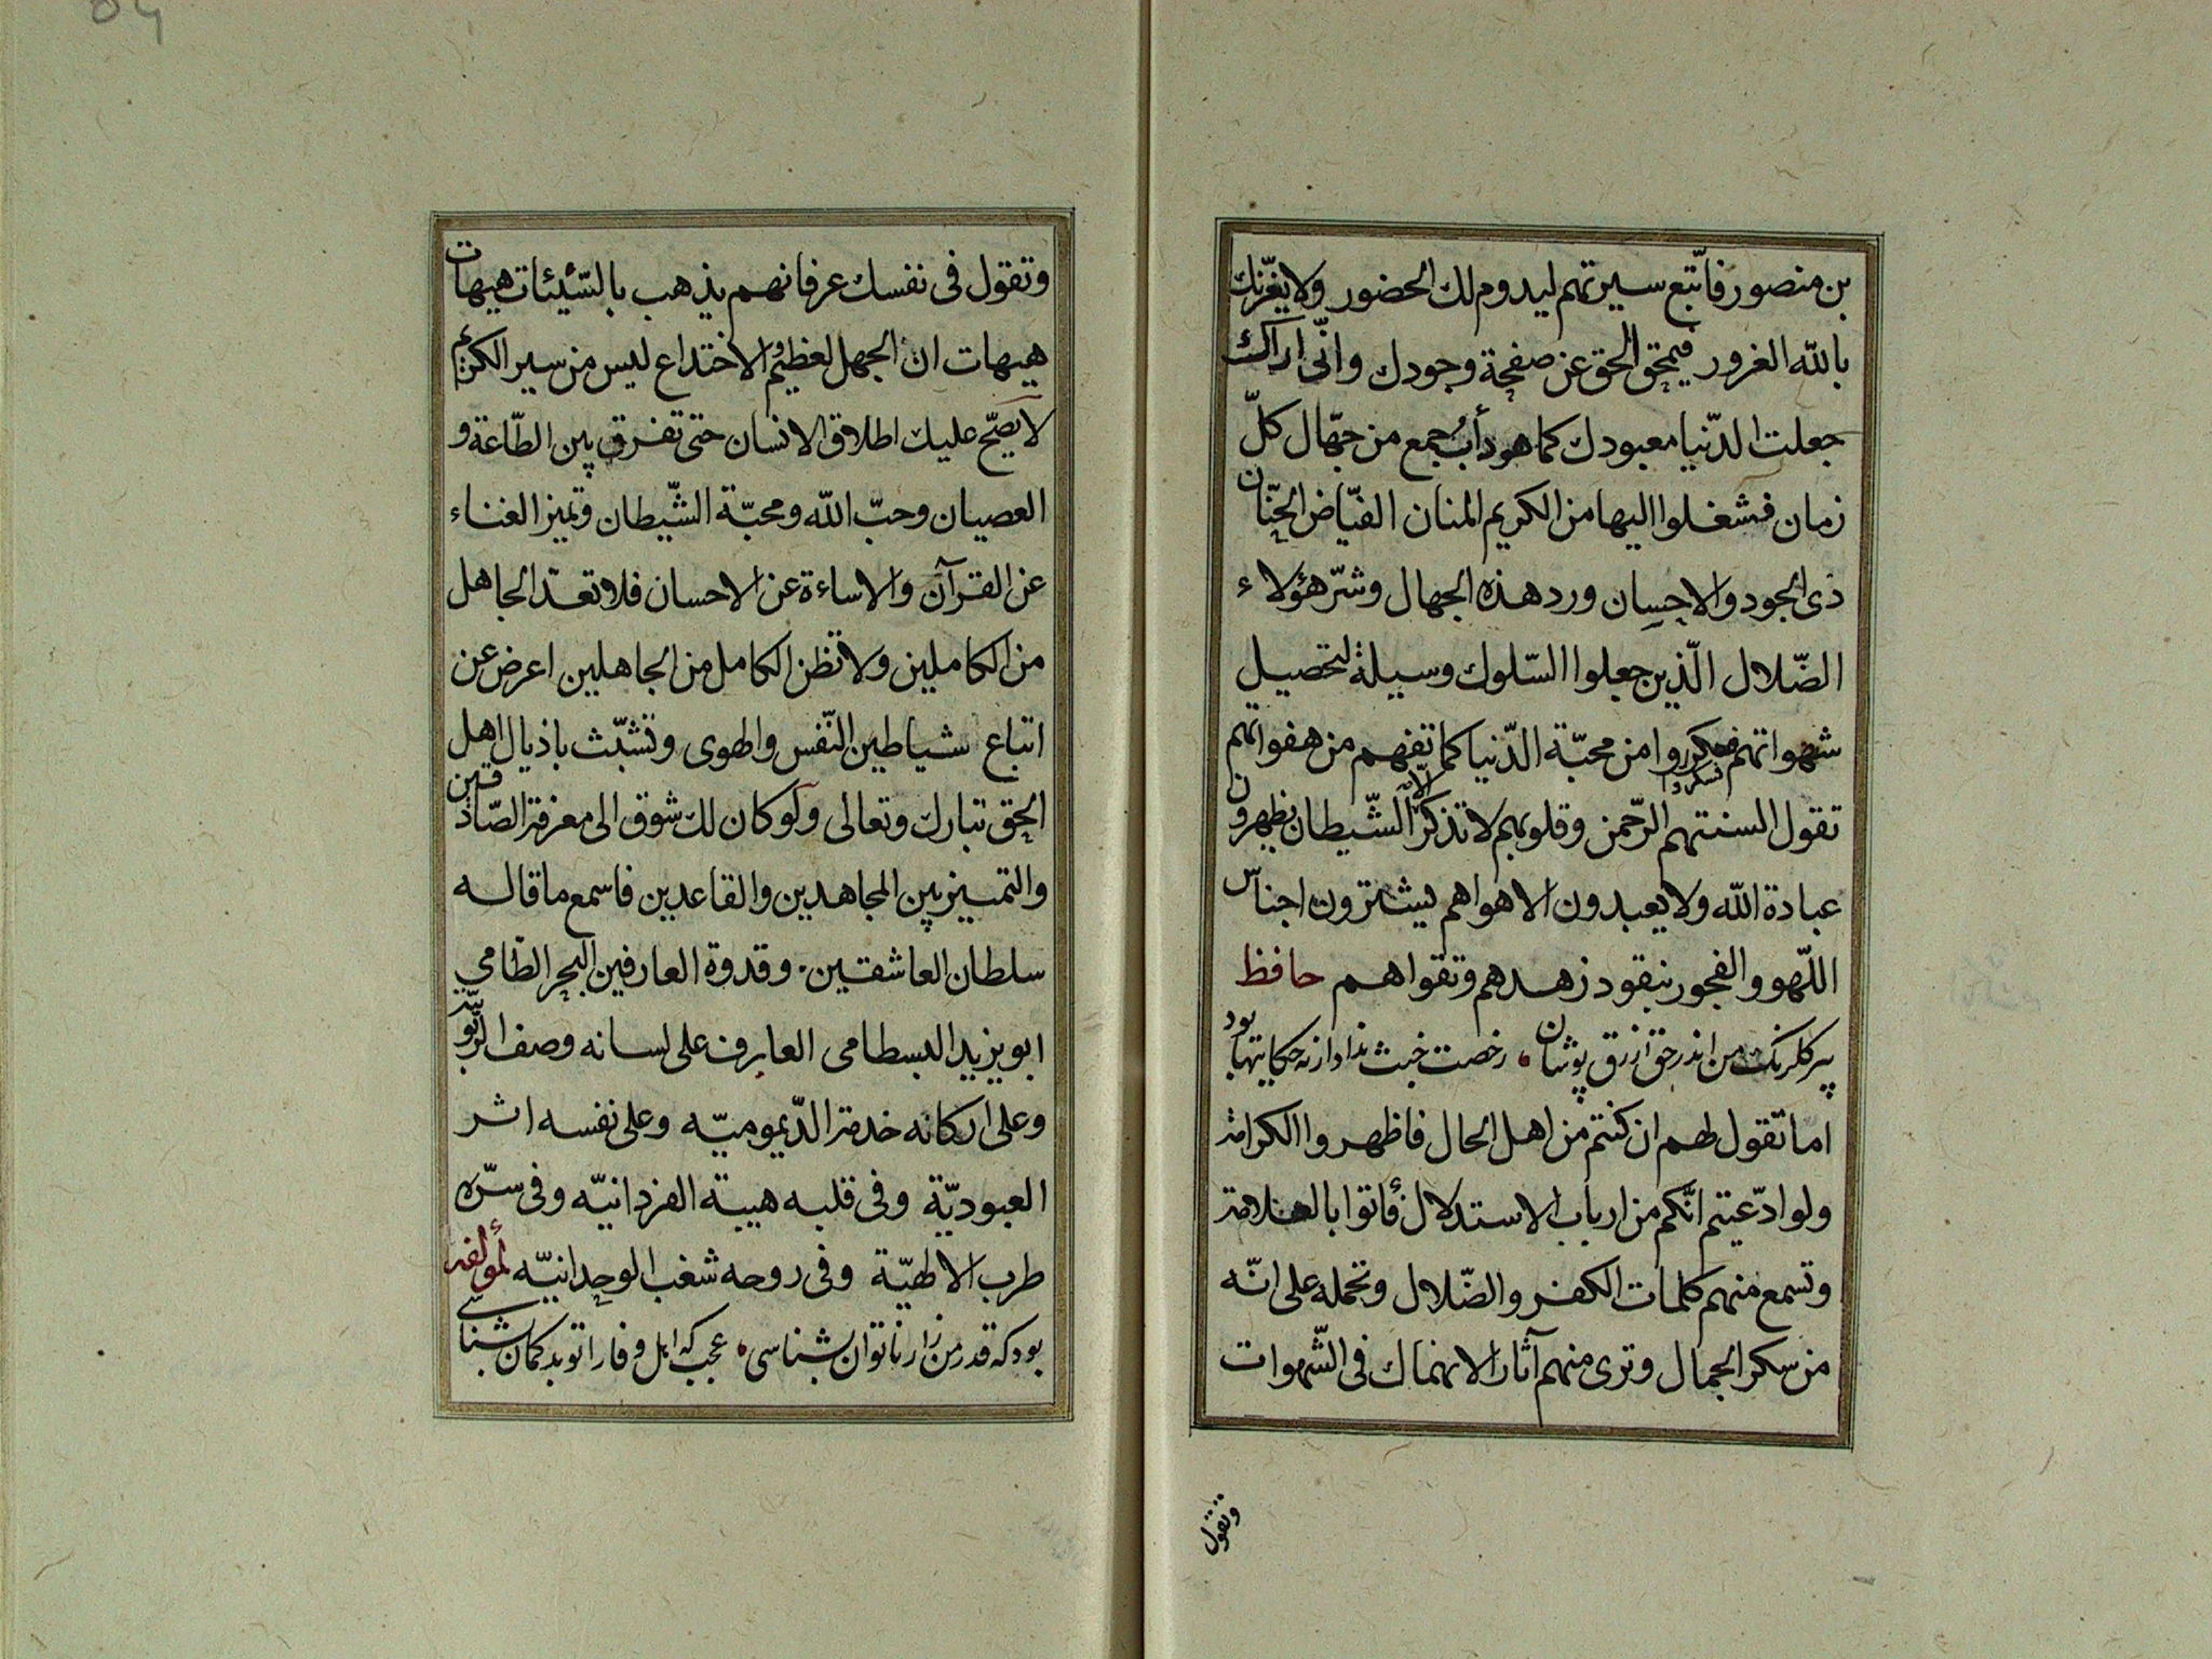 بن منصور فاتّبع سيرتهم ليدوم لك الحضور ولا يغرّنك
بالله الغرور فيمحق الحق عن صفحة وجودك وانّى اراك
جعلت الدّنيا معبودك كما هو دأب جمع من جهّال كلّ
زمان فشغلوا اليها من الكريم المنان الفيّاض الحنّان
ذى الجود والاحسان ورد هذه الجهال وشرّ هؤلاء
الضّلال الّذين جعلوا السّلوك وسيلة لتحصيل
شهواتهم فسكروا من محبّة الدّنيا كما تفهم من هفواتهم
تقول السنتهم الرّحمن وقلوبهم لا تذكر الّا الشّيطان يظهرون
عبادة الله ولا يعبدون الا هواهم يشترون اجناس
اللّهو والفجور بنقود زهدهم وتقواهم حافظ
پير كلرنك من اندر حق ازرق پوشان رخصت خبث نداد ار نه حكايتها بود
اما تقول لهم ان كنتم من اهل الحال فاظهروا الكرامة
ولو ادّعيتم انّكم من ارباب الاستدلال فأتوا بالعلامة
وتسمع منهم كلمات الكفر والضّلال وتحمله على انّه
من سكر الجمال وترى منهم آثار الانهماك فى الشّهوات
وتقول
وتقول فى نفسك عرفانهم يذهب بالسّيّئات هيهات
هيهات ان الجهل لعظيم والاختداع ليس من سير الكريم
لا يصحّ عليك اطلاق الانسان حتى تفرق بين الطّاعة و
العصيان وحبّ الله ومحبّة الشّيطان وتميز الغناء
عن القرآن والاساءة عن الاحسان فلا تعدّ الجاهل
من الكاملين ولا تظن الكامل من الجاهلين اعرض عن
اتباع شياطين النّفس والهوى وتشبّث باذيال اهل
الحق تبارك وتعالى ولو كان لك شوق الى معرفة الصّادقين
والتمييز بين المجاهدين والقاعدين فاسمع ما قاله
سلطان العاشقين وقدوة العارفين البحر الطّامي
ابو يزيد البسطامى العارف على لسانه وصف الرّبوبيّة
وعلى اركانه خدمة الدّيموميّه وعلى نفسه اثر
العبوديّة وفى قلبه هيبة الفردانيّه وفى سرّه
طرب الالهيّة وفى روحه شغب الوحدانيّه لمؤلفه
بود كه قدر من زار ناتوان بشناسى عجب كه اهل وفا را تو بد كمان بشناسى